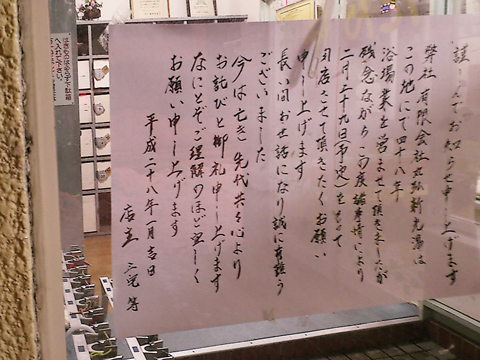 謹しんでお知らせ申し上げます
弊社 有限会社
この地にて四十八年
浴場業を営ませて頂きましたが
残念ながらこの度諸事情により
二月二十九日(予定)をもって
閉店させて頂きたくお願い
申し上げます
長い間お世話になり誠に有難う
ございました
今は亡き先代共々心より
お詫びと御礼申し上げます
なにとぞご理解のほど宜しく
お願い申し上げます
平成二十八年一月吉日
店主
はきものは必らず下駄箱
へ入れて下さい。